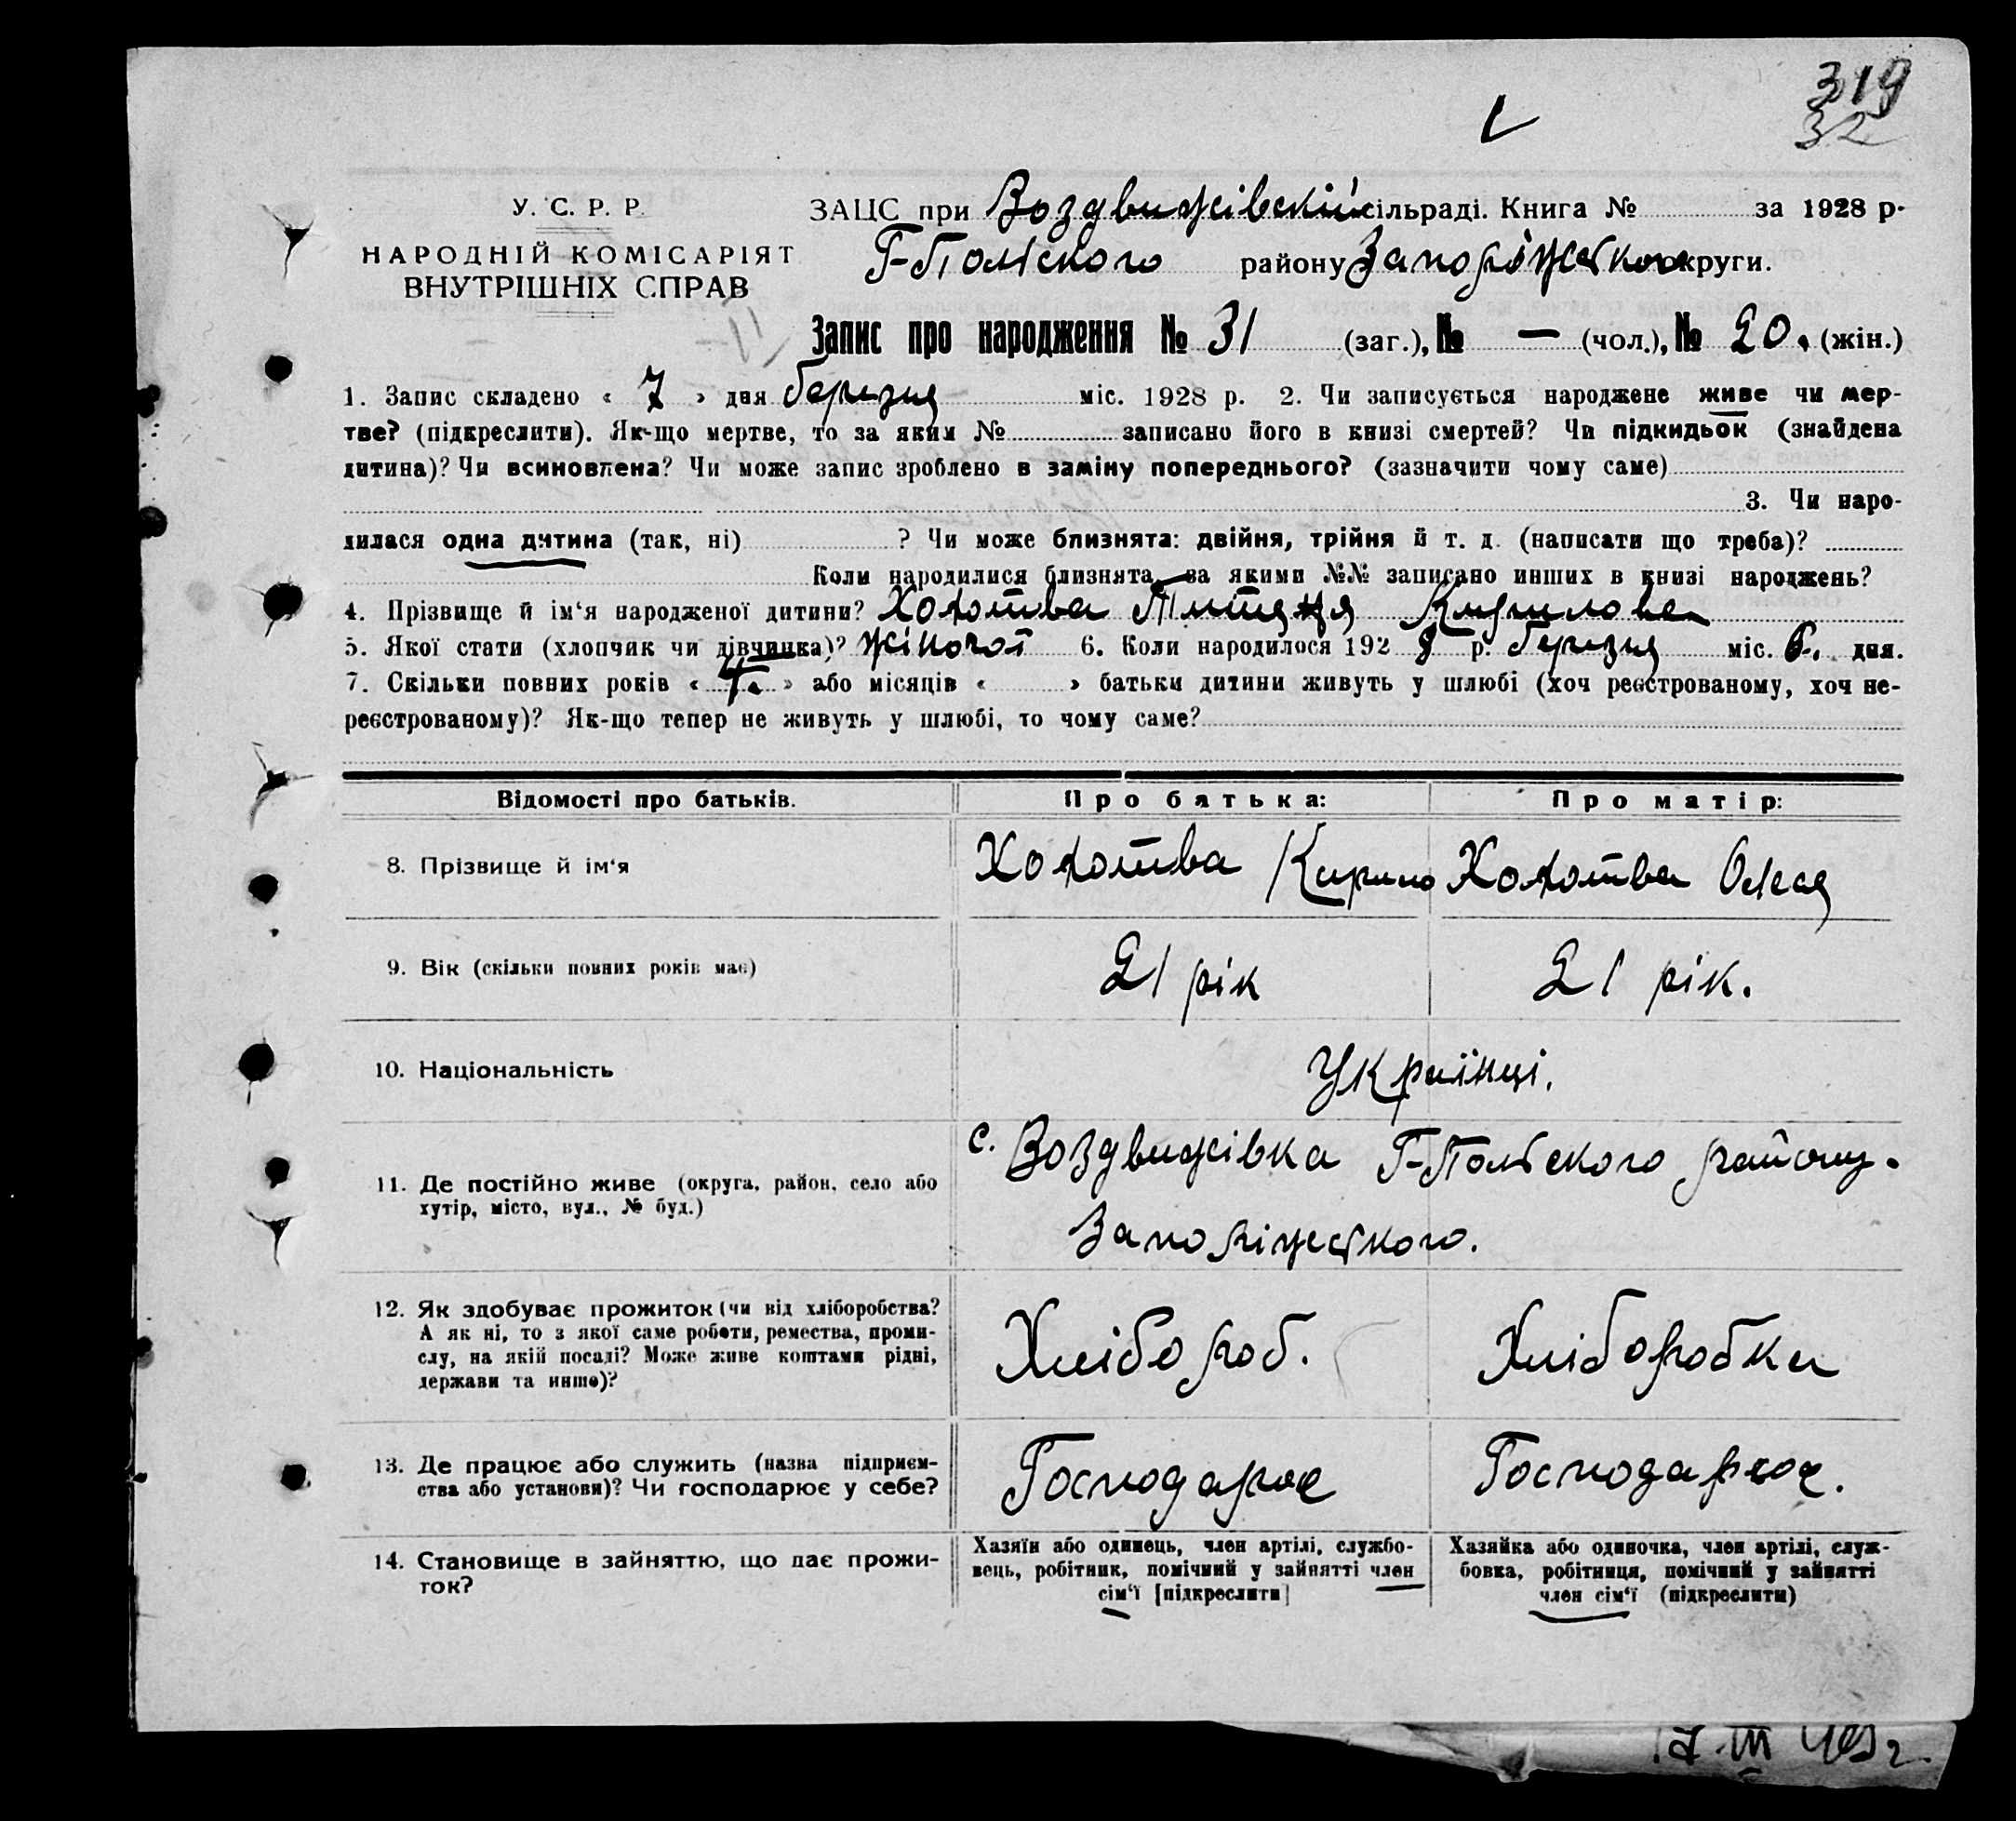 319
32
У. С. Р. Р.
НАРОДНІЙ КОМІСАРІЯТ
ВНУТРІШНІХ СПРАВ
ЗАЦС при Воздвижівский сільраді. Книга № за 1928 р.
Г-Польского району Запоріжського округи.
Запис про народження № 31 (заг.), № — (чол.), № 20. (жін.)
1. Запис складено « 7 » дня березня міс. 1928 р. 2. Чи записується народжене живе чи мер-
тве? (підкреслити). Як-що мертве, то за яким № записано його в книзі смертей? Чи підкидьок (знайдена
дитина)? Чи всиновлена? Чи може запис зроблено в заміну попереднього? (зазначити чому саме)
3. Чи наро-
дилася одна дитина (так, ні) ? Чи може близнята: двійня, трійня й т. д. (написати що треба)?
Коли народилися близнята, за якими №№ записано инших в книзі народжень?
4. Прізвище й ім‘я народженої дитини? Холотва Кирилова
5. Якої стати (хлопчик чи дівчинка)? жіночої 6. Коли народилося 192 8 р. березня міс. 6. дня.
7. Скільки повних років « » або місяців « » батьки дитини живуть у шлюбі (хоч реєстрованому, хоч не-
реєстрованому)? Як-що тепер не живуть у шлюбі, то чому саме?
Відомості про батьків. Про батька: Про матір:
8. Прізвище й ім‘я Холотва Кирило Холотва
9. Вік (скільки повних років має) 21 рік 21 рік.
10. Національність Українці.
11. Де постійно живе (округа, район, село або
хутір, місто, вул., № буд.)
с. Воздвижівка Г-Польского району.
Запоріжського.
12. Як здобуває прожиток (чи від хліборобства?
А як ні, то з якої саме роботи, ремества, проми-
слу, на якій посаді? Може живе коштами рідні,
держави та инше)?
Хлібороб. Хліборобка
13. Де працює або служить (назва підприєм-
ства або установи)? Чи господарює у себе?
Господарює Господарює.
14. Становище в зайняттю, що дає прожи-
ток?
Хазяїн або одинець, член артілі, службо-
вець, робітник, помічний у зайнятті член
сім‘ї [підкреслити]
Хазяйка або одиночка, член артілі, служ-
бовка, робітниця, помічний у зайнятті
член сім‘ї (підкреслити)